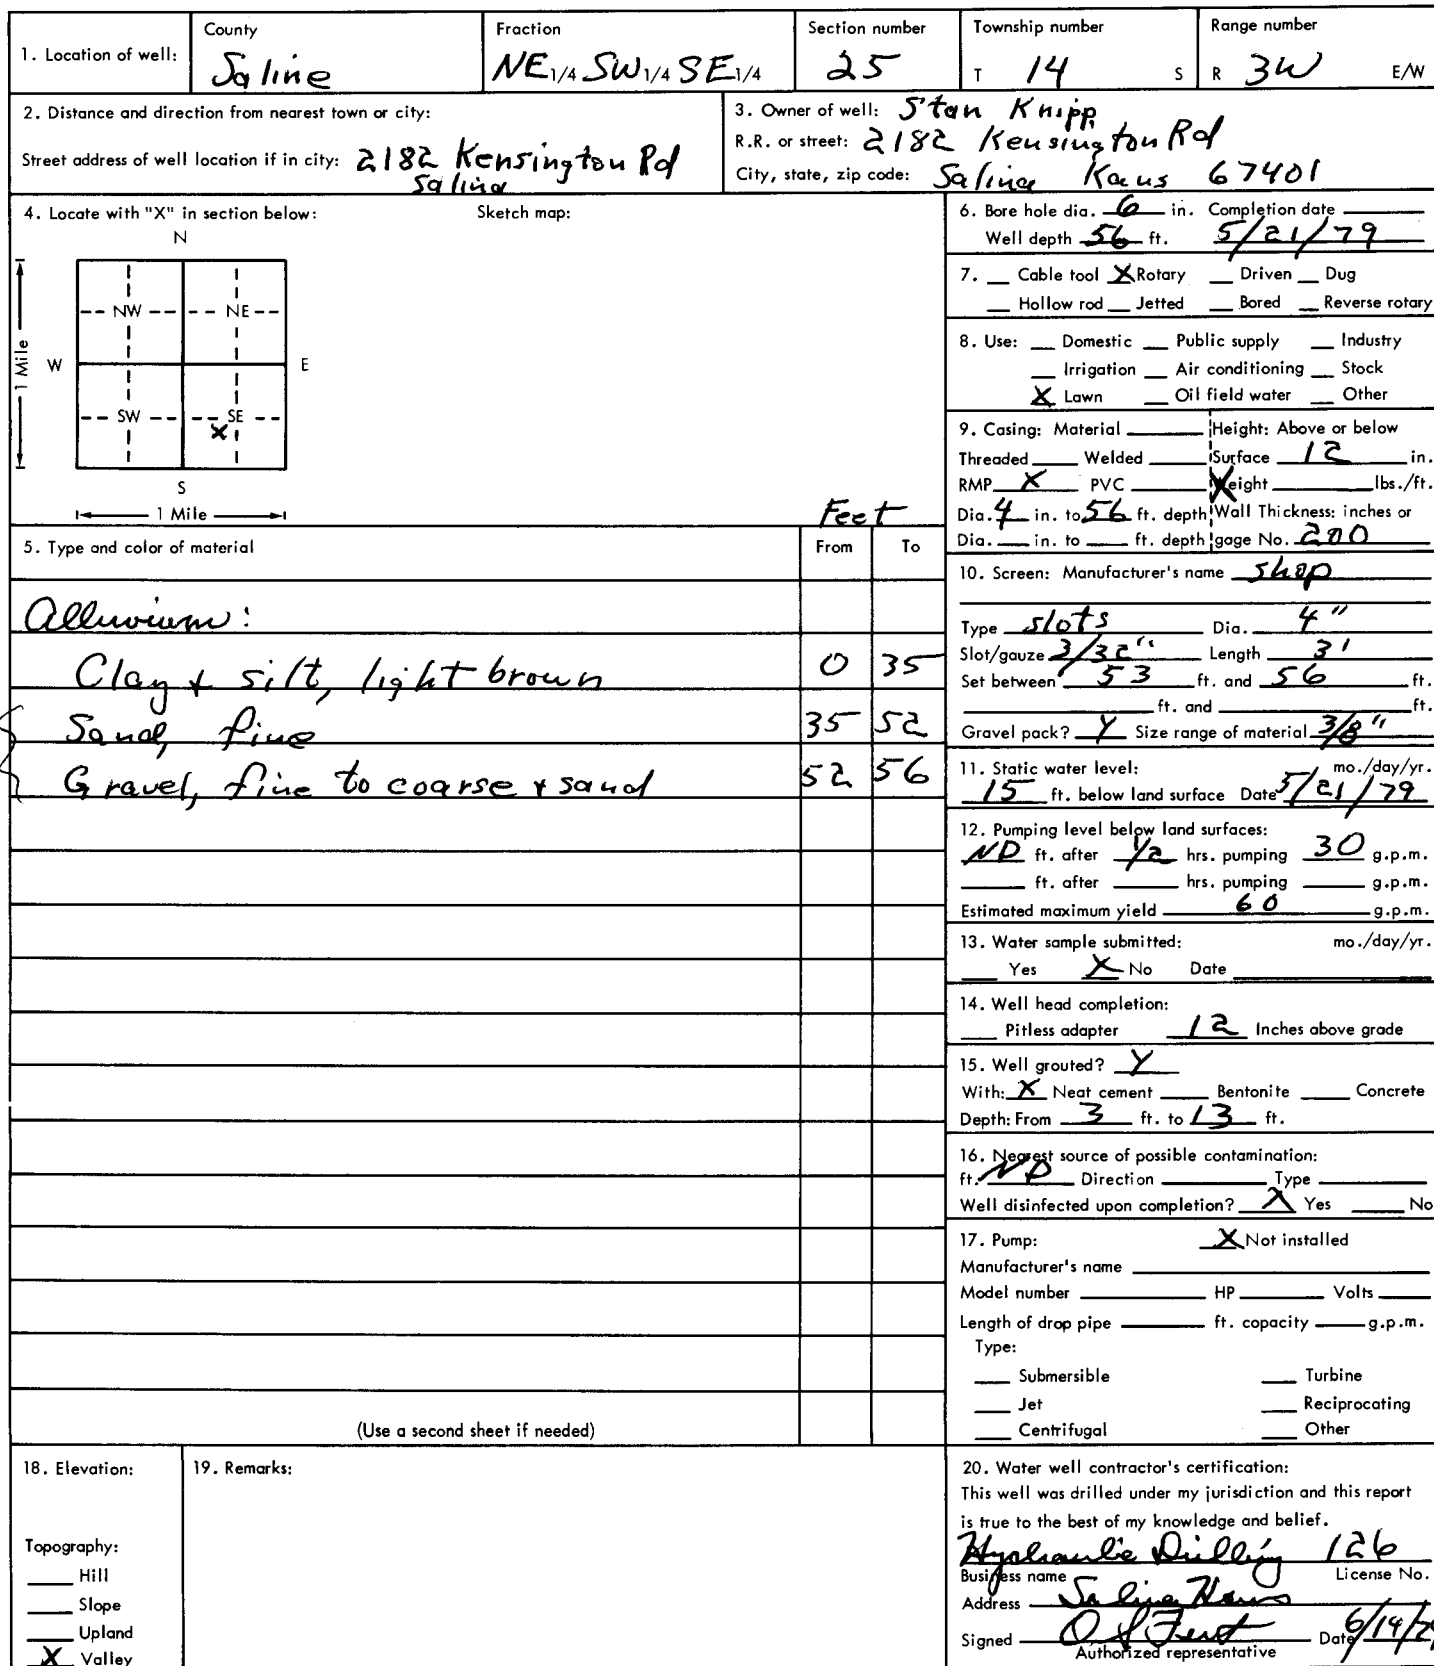 1. Location of well: County Saline Fraction NE 1/4 SW 1/4 SE 1/4 Section number 25 Township number T 14 S Range number R 3W E/W
2. Distance and direction from nearest town or city:
Street address of well location if in city: 2182 Kensington Rd
Salina
3. Owner of well: Stan Knipp
R.R. or street: 2182 Kensington Rd
City, state, zip code: Salina Kans 67401
4. Locate with "X" in section below: Sketch map:
N
NW NE
W E
1 Mile
SW SE
X
S
1 Mile
Feet
5. Type and color of material From To
Alluvium:
Clay + silt, light brown 0 35
Sand, fine 35 52
Gravel, fine to coarse + sand 52 56
(Use a second sheet if needed)
6. Bore hole dia. 6 in. Completion date
Well depth 56 ft. 5/21/79
7. Cable tool X Rotary Driven Dug
Hollow rod Jetted Bored Reverse rotary
8. Use: Domestic Public supply Industry
Irrigation Air conditioning Stock
X Lawn Oil field water Other
9. Casing: Material Height: Above or below
Threaded Welded Surface 12 in.
RMP X PVC Weight lbs./ft.
Dia. 4 in. to 56 ft. depth Wall Thickness: inches or
Dia. in. to ft. depth gage No. 200
10. Screen: Manufacturer's name shop
Type slots Dia. 4"
Slot/gauze 3/32" Length 3'
Set between 53 ft. and 56 ft.
ft. and ft.
Gravel pack? Y Size range of material 3/8"
11. Static water level: mo./day/yr.
15 ft. below land surface Date 5/21/79
12. Pumping level below land surfaces:
ND ft. after 1/2 hrs. pumping 30 g.p.m.
ft. after hrs. pumping g.p.m.
Estimated maximum yield 60 g.p.m.
13. Water sample submitted: mo./day/yr.
Yes X No Date
14. Well head completion:
Pitless adapter 12 Inches above grade
15. Well grouted? Y
With: X Neat cement Bentonite Concrete
Depth: From 3 ft. to 13 ft.
16. Nearest source of possible contamination:
ft. ND Direction Type
Well disinfected upon completion? X Yes No
17. Pump: X Not installed
Manufacturer's name
Model number HP Volts
Length of drop pipe ft. capacity g.p.m.
Type:
Submersible Turbine
Jet Reciprocating
Centrifugal Other
18. Elevation:
Topography:
Hill
Slope
Upland
X Valley
19. Remarks:
20. Water well contractor's certification:
This well was drilled under my jurisdiction and this report
is true to the best of my knowledge and belief.
Hydraulic Drilling 126
Business name License No.
Address Salina Kans
Signed Date 6/14/
Authorized representative